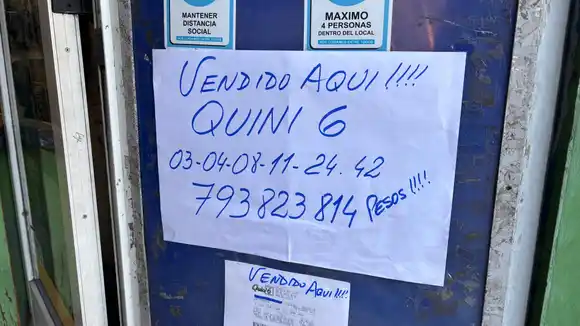 MANTENER
DISTANCIA
SOCIAL
MAXIMO
4 PERSONAS
DENTRO DEL LOCAL
VENDIDO AQUI!!!!
QUINI 6
03-04-08-11-24.42
793823814 PESOS!!!!
VENDIDO AQUI!!!!